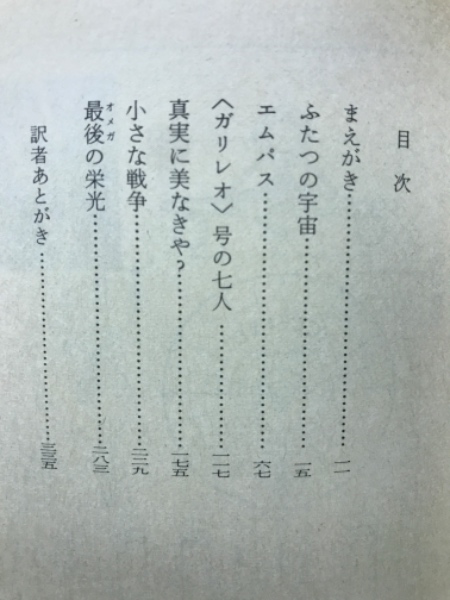 目次
まえがき……………………………一一
ふたつの宇宙……………………………一五
エムパス……………………………六七
〈ガリレオ〉号の七人……………………………一一七
真実に美なきや?……………………………一七五
小さな戦争……………………………二二九
最後の栄光……………………………二八三
オメガ
訳者あとがき……………………………三三五